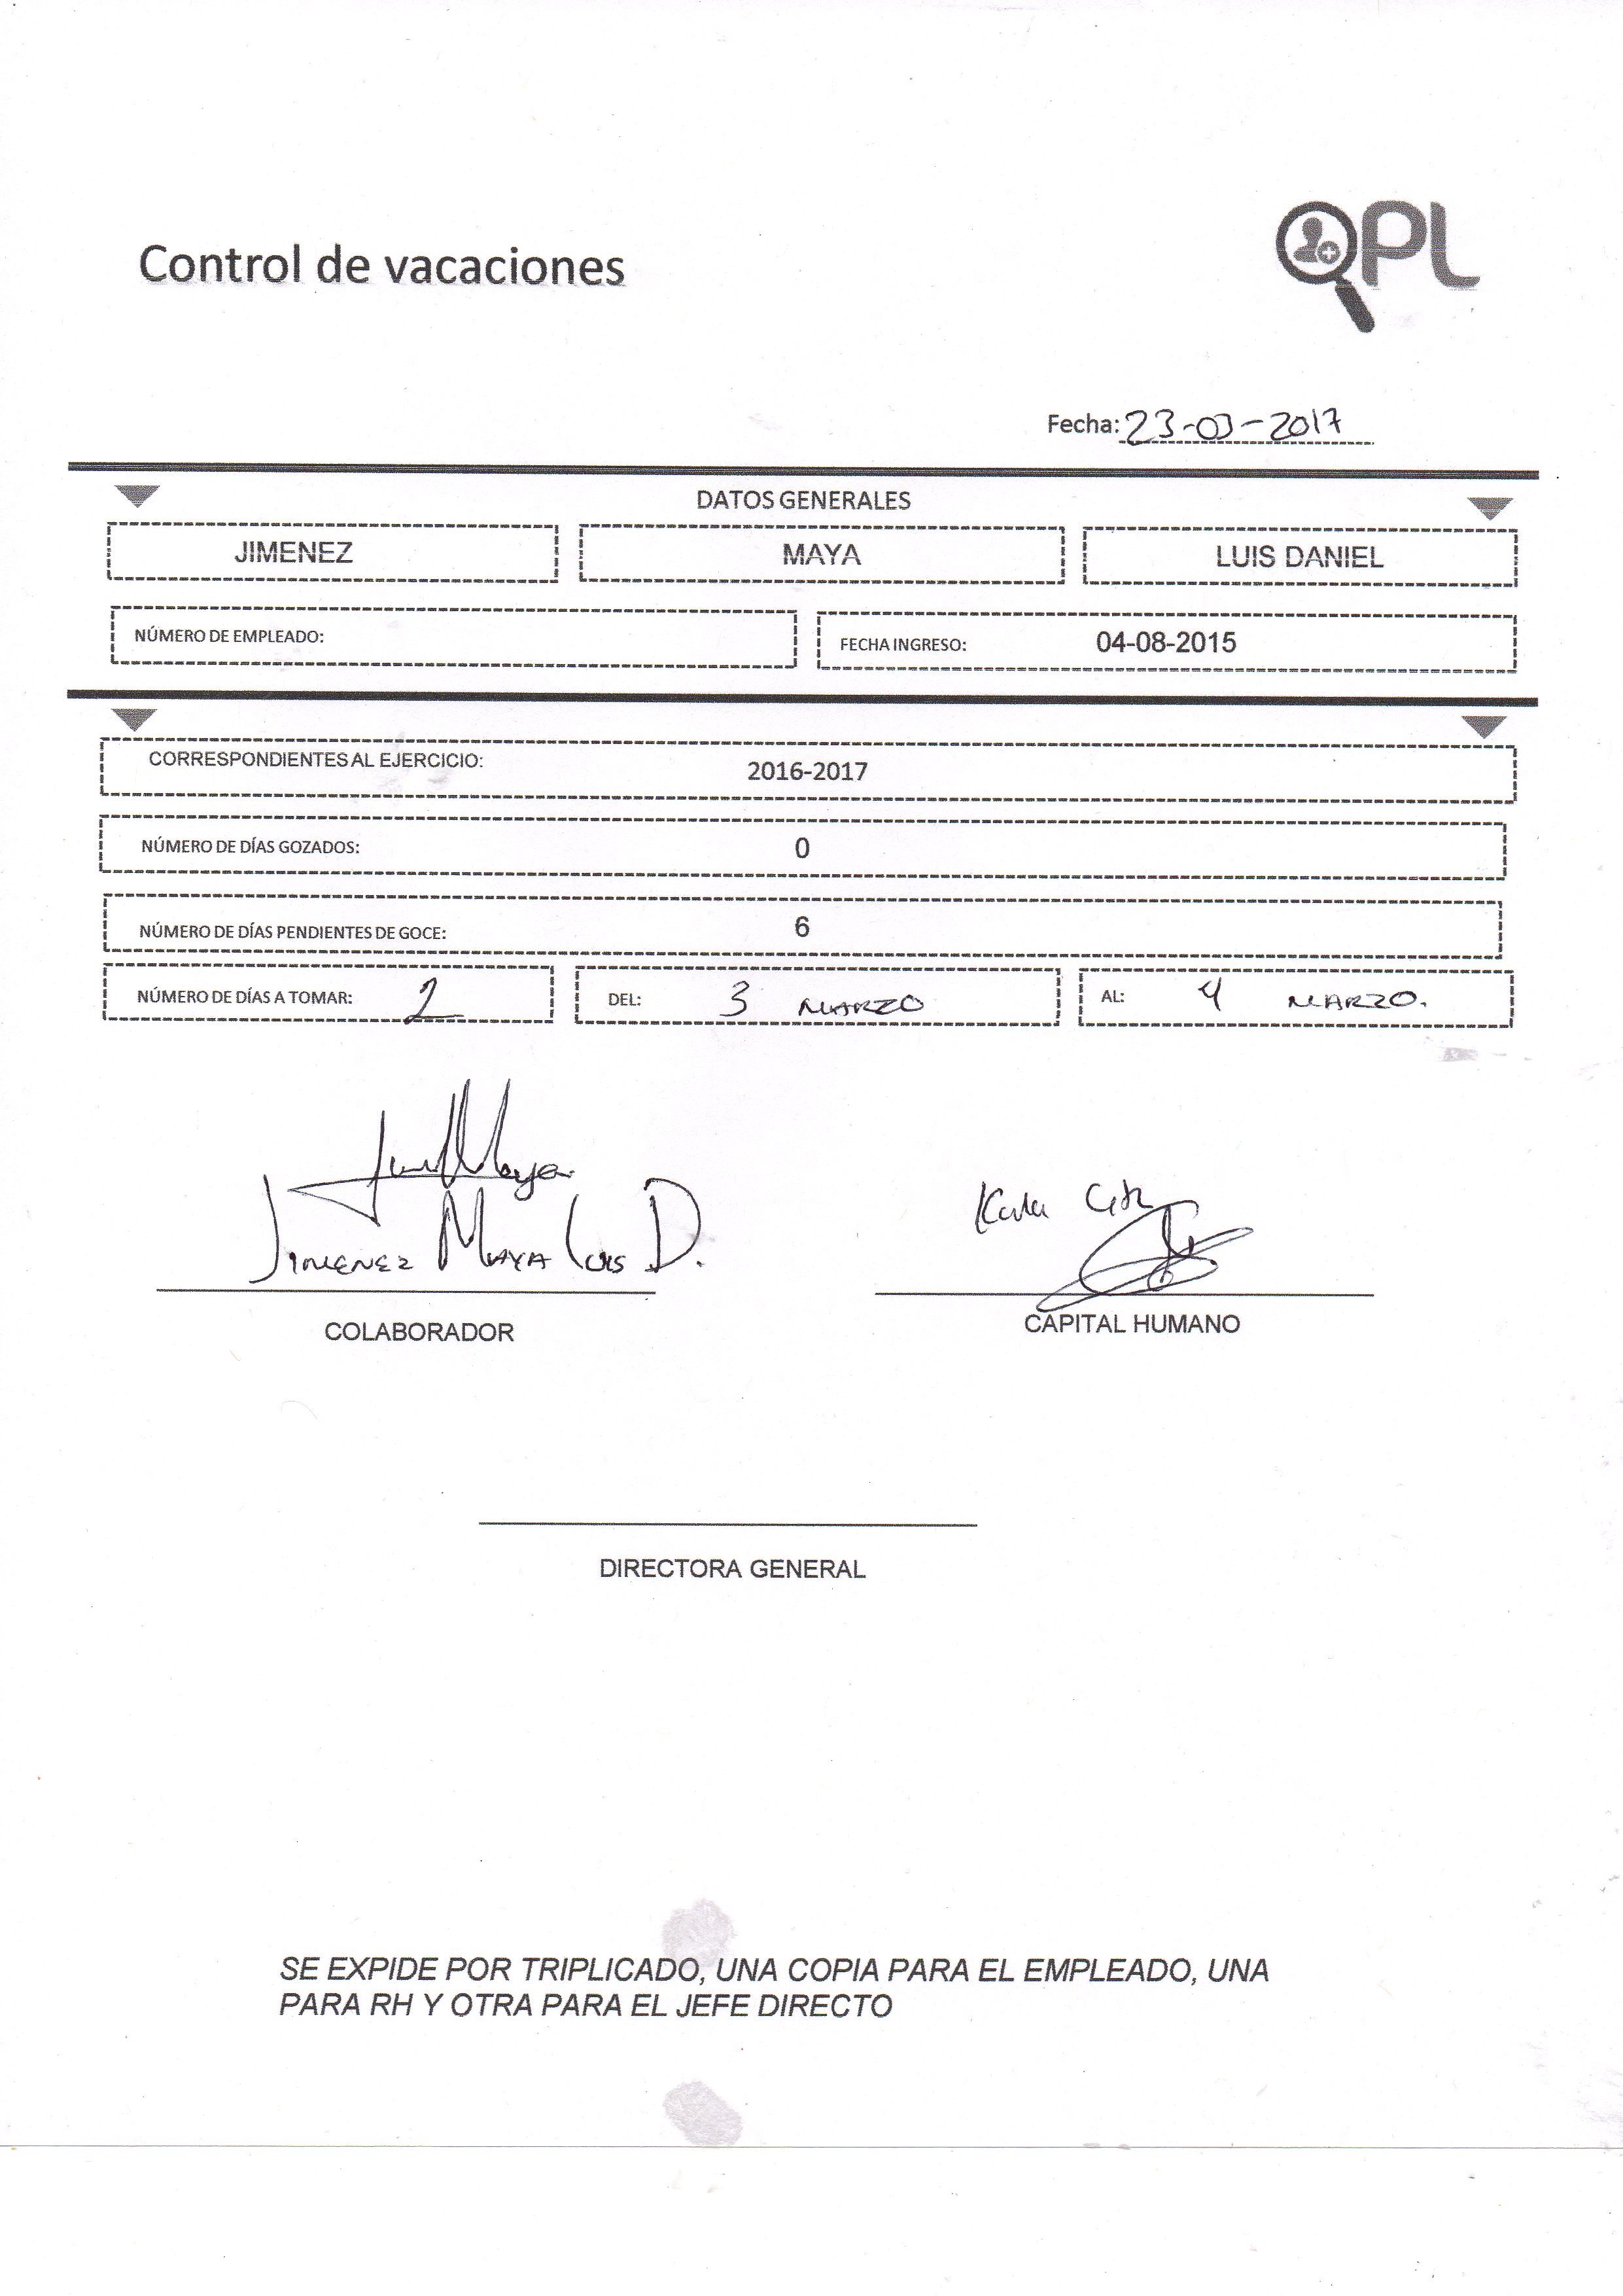 Control de vacaciones
QPL
Fecha: 23-03-2017
DATOS GENERALES
JIMENEZ MAYA LUIS DANIEL
NÚMERO DE EMPLEADO: FECHA INGRESO: 04-08-2015
CORRESPONDIENTES AL EJERCICIO: 2016-2017
NÚMERO DE DÍAS GOZADOS: 0
NÚMERO DE DÍAS PENDIENTES DE GOCE: 6
NÚMERO DE DÍAS A TOMAR: 2 DEL: 3 MARZO AL: 4 MARZO.
Karla
JIMENEZ MAYA LUIS D.
COLABORADOR CAPITAL HUMANO
DIRECTORA GENERAL
SE EXPIDE POR TRIPLICADO, UNA COPIA PARA EL EMPLEADO, UNA
PARA RH Y OTRA PARA EL JEFE DIRECTO